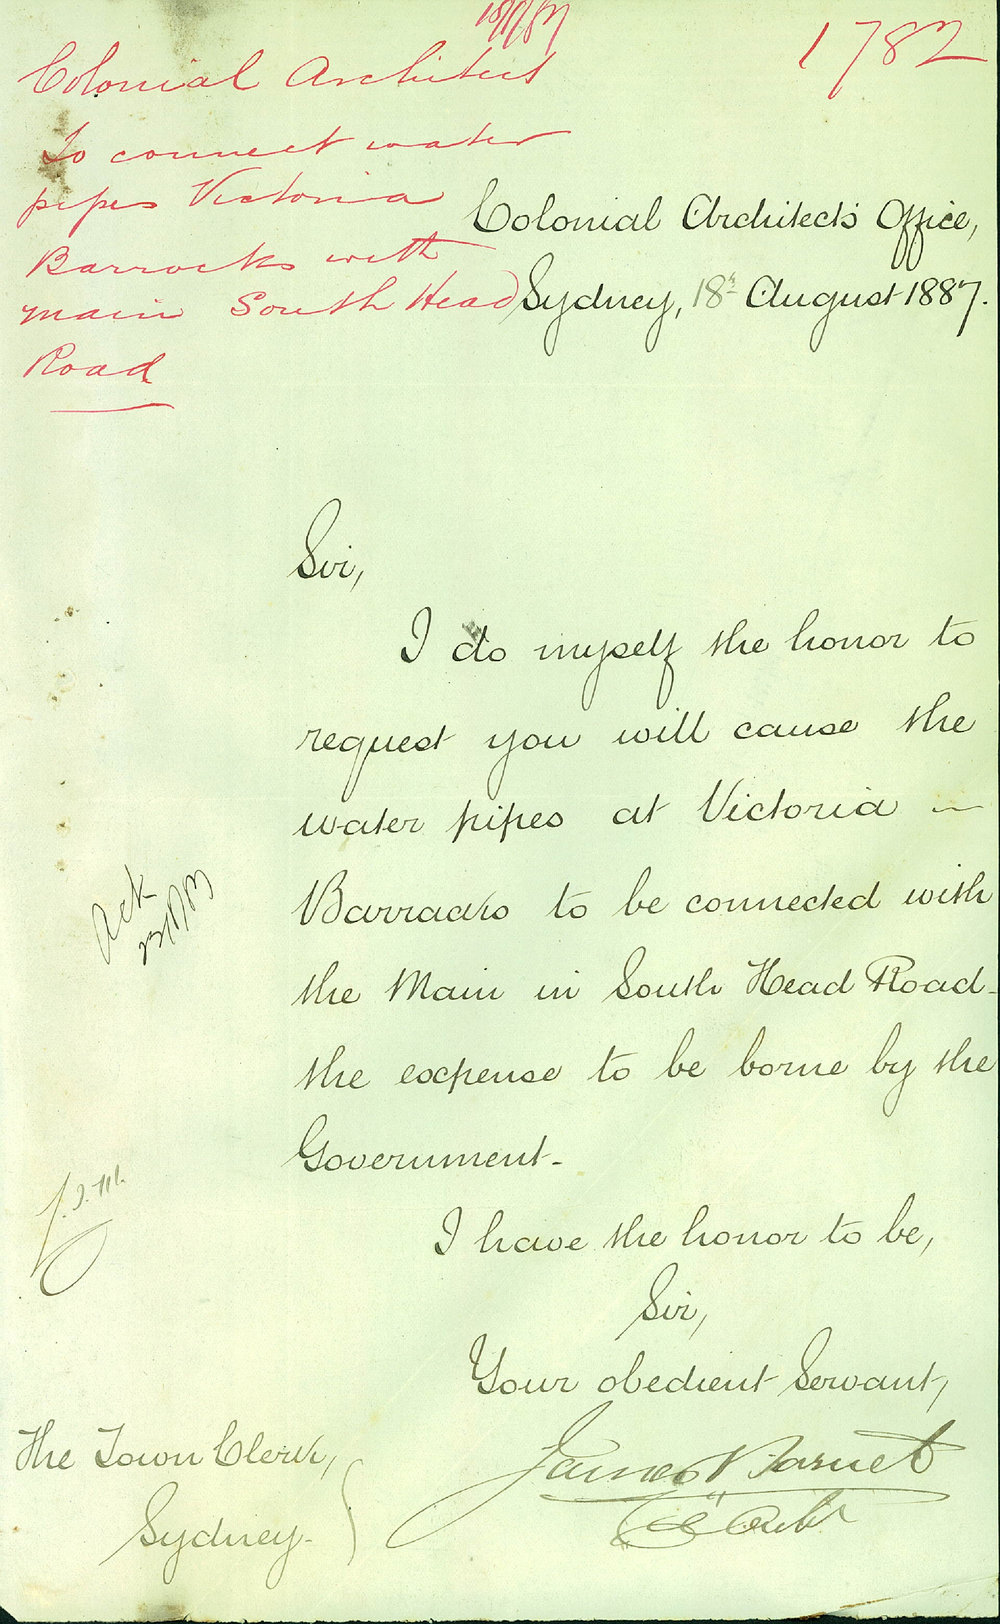 1782
Colonial Architect
To connect water
pipes Victoria
Barracks with
main South Head
Road
Colonial Architect's Office,
Sydney, 18th August 1887.
Sir,
I do myself the honor to
request you will cause the
water pipes at Victoria –
Barracks to be connected with
the Main in South Head Road –
the expense to be borne by the
Government –
Ack
I have the honor to be,
Sir,
Your obedient Servant,
James Barnet
The Town Clerk,
Sydney –